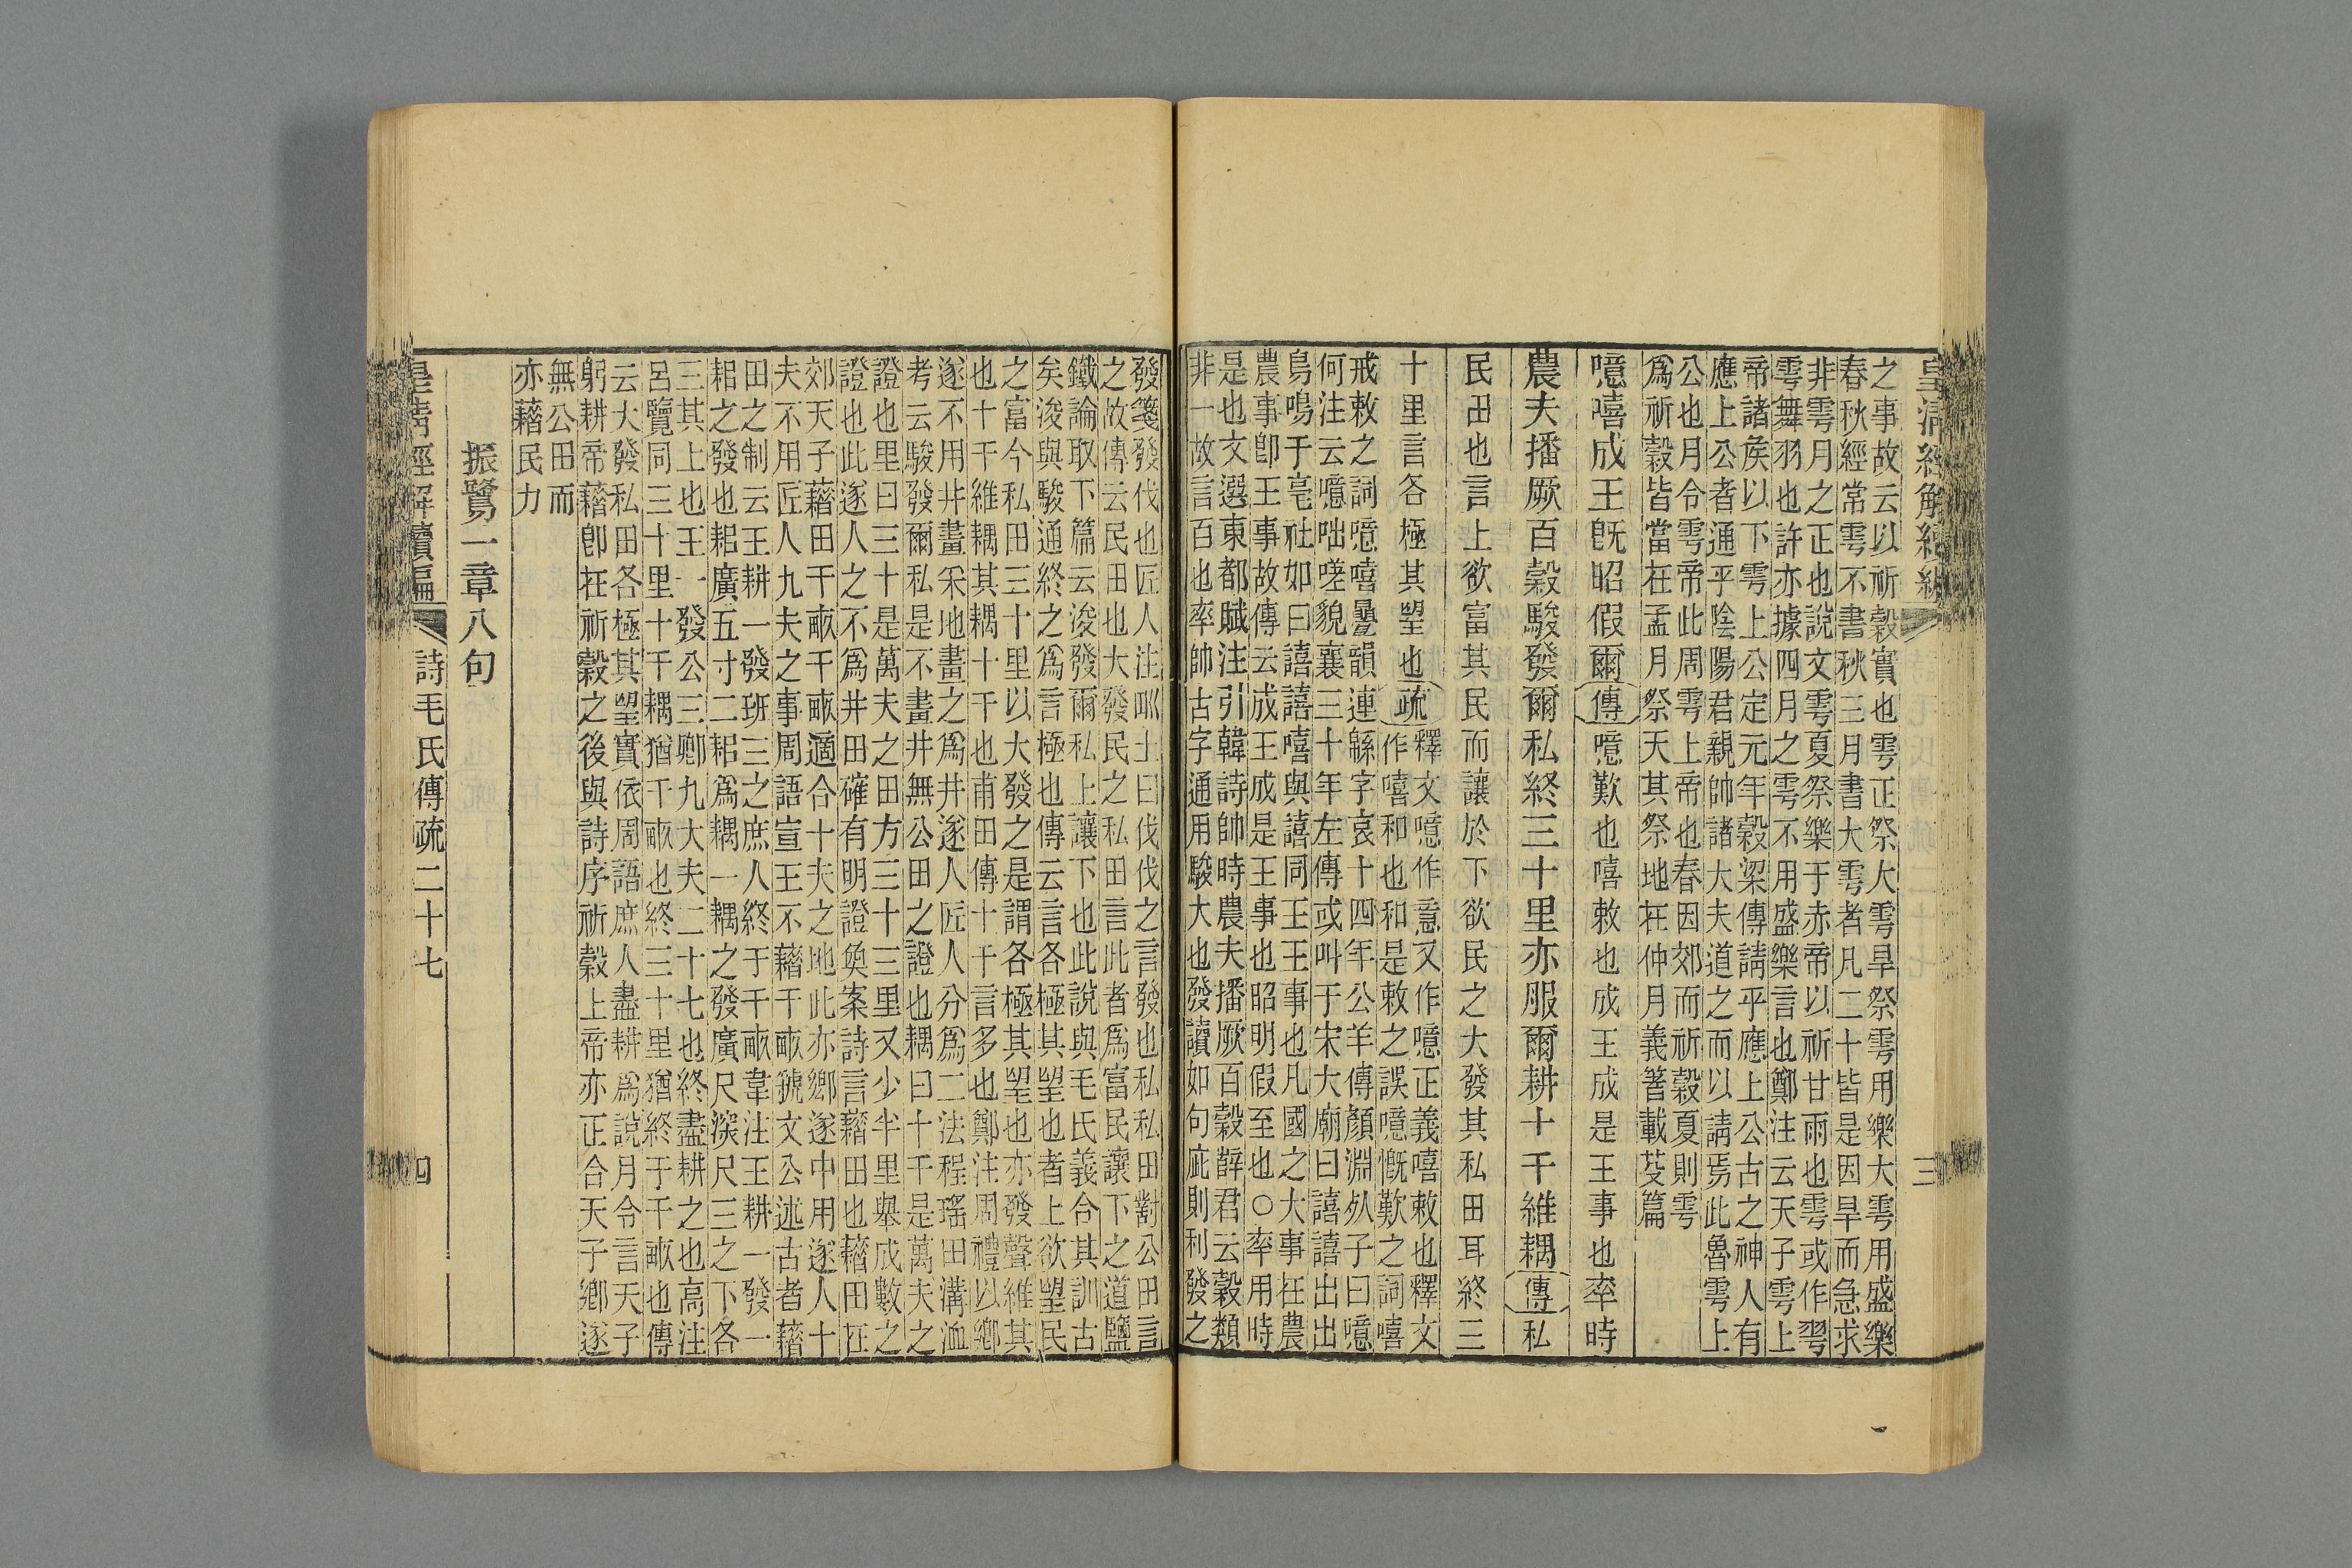 皇清經解續編
三
之事故云以祈穀實也雩正祭大雩旱祭雩用樂大雩用盛樂
春秋經常雩不書秋三月書大雩者凡二十皆是因旱而急求
非雩月之正也說文雩夏祭樂于赤帝以祈甘雨也雩或作䨒
雩舞羽也許亦據四月之雩不用盛樂言也鄭注云天子雩上
帝諸矦以下雩上公定元年穀梁傳請乎應上公古之神人有
應上公者通乎陰陽君親帥諸大夫道之而以請焉此魯雩上
公也月令雩帝此周雩上帝也春因郊而祈穀夏則雩
爲祈穀皆當在孟月祭天其祭地在仲月義箸載芟篇
噫嘻成王旣昭假爾傳噫歎也嘻敕也成王成是王事也率時
農夫播厥百穀駿發爾私終三十里亦服爾耕十千維耦傳私
民田也言上欲富其民而讓於下欲民之大發其私田耳終三
十里言各極其望也疏釋文噫作意又作噫正義嘻敕也釋文
作嘻和也和是敕之誤噫慨歎之詞嘻
戒敕之詞噫嘻疊韻連緜字哀十四年公羊傳顏淵㱙子曰噫
何注云噫咄嗟貌襄三十年左傳或叫于宋大廟曰譆譆出出
鳥鳴于亳社如曰譆譆嘻與譆同王王事也凡國之大事在農
農事卽王事故傳云成王成是王事也昭明假至也○率用時
是也文選東都賦注引韓詩帥時農夫播厥百穀辥君云穀類
非一故言百也率帥古字通用駿大也發讀如句庛則利發之
發箋發伐也匠人注畎土曰伐伐之言發也私私田對公田言
之故傳云民田也大發民之私田言此者爲富民讓下之道鹽
鐵論取下篇云浚發爾私上讓下也此說與毛氏義合其訓古
矣浚與駿通終之爲言極也傳云言各極其望也者上欲望民
之富今私田三十里以大發之是謂各極其望也亦發聲維其
也十千維耦其耦十千也甫田傳十千言多也鄭注周禮以鄉
遂不用井畫采地畫之爲井遂人匠人分爲二法程瑤田溝洫
考云駿發爾私是不畫井無公田之證也耦曰十千是萬夫之
證也里曰三十是萬夫之田方三十三里又少半里舉成數之
證也此遂人之不爲井田確有明證奐案詩言藉田也藉田在
郊天子藉田千畝千畝適合十夫之地此亦鄉遂中用遂人十
夫不用匠人九夫之事周語宣王不藉千畝虢文公述古者藉
田之制云王耕一發班三之庶人終于千畝韋注王耕一發一
耜之發也耜廣五寸二耜爲耦一耦之發廣尺深尺三之下各
三其上也王一發公三卿九大夫二十七也終盡耕之也高注
呂覽同三十里十千耦猶千畝也終三十里猶終于千畝也傳
云大發私田各極其望實依周語庶人盡耕爲說月令言天子
躬耕帝藉卽在祈穀之後與詩序祈穀上帝亦正合天子鄉遂
無公田而
亦藉民力
振鷺一章八句
皇清經解續編
詩毛氏傳疏二十七
四